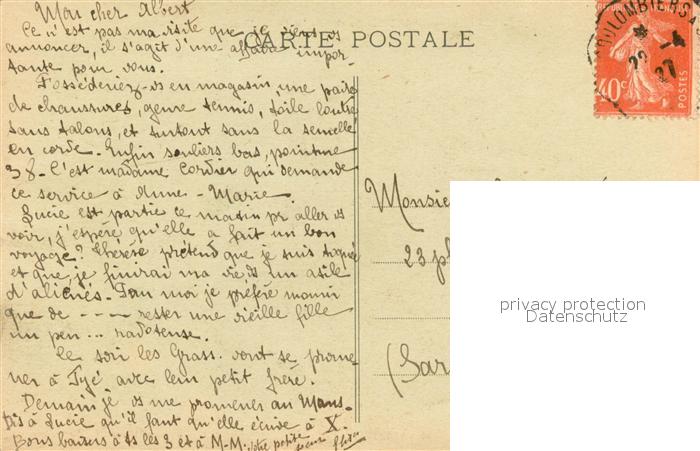 Mon cher Albert
Ce n'est pas ma visite que je viens vs
annoncer, il s'agit d'une affaire impor-
tante pour vous.
CARTE POSTALE
Possèderiez-vs en magasin, une paire
de chaussures, genre tennis, toile
sans talons, et surtout sans la semelle
en corde. Enfin souliers bas, pointure
38. C'est madame Cordier qui demande
ce service à Anne-Marie.
Lucie est partie ce matin pr aller vs
voir, j'espère qu'elle a fait un bon
voyage? Thérèse prétend que je suis toquée
et que je finirai ma vie ds un asile
d'aliénés. Pour moi je préfère mourir
que de ---- rester une vieille fille
un peu ... radoteuse.
Ce soir les Grass. vont se prome-
ner à Tyé avec leur petit frère.
Demain je vs me promener au Mans.
Dis à Lucie qu'il faut qu'elle écrive à X.
Bons baisers à ts les 3 et à M-M. votre petite
soeur
COLOMBIERS
22
-4
27
40c
POSTES
Monsie
23 pl
(Sar
privacy protection
Datenschutz